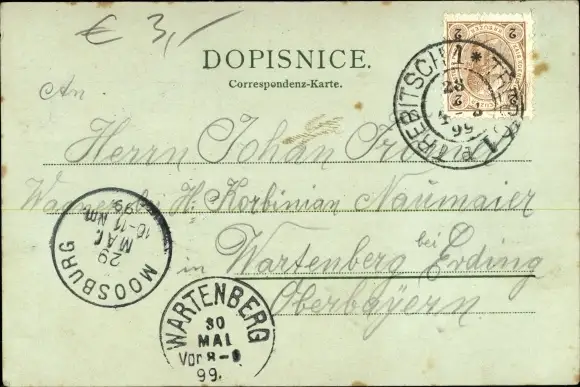 € 3,-
DOPISNICE.
Correspondenz-Karte.
An
Herrn Johan
Wagner H: Korbinian Naumaier
bei
in Wartenberg Erding
Oberbayern
TREBITSCH
28
99
2
2
2
2
MOOSBURG
29
MAI
10-11 Nm
99
WARTENBERG
30
MAI
Vor 8-9
99.